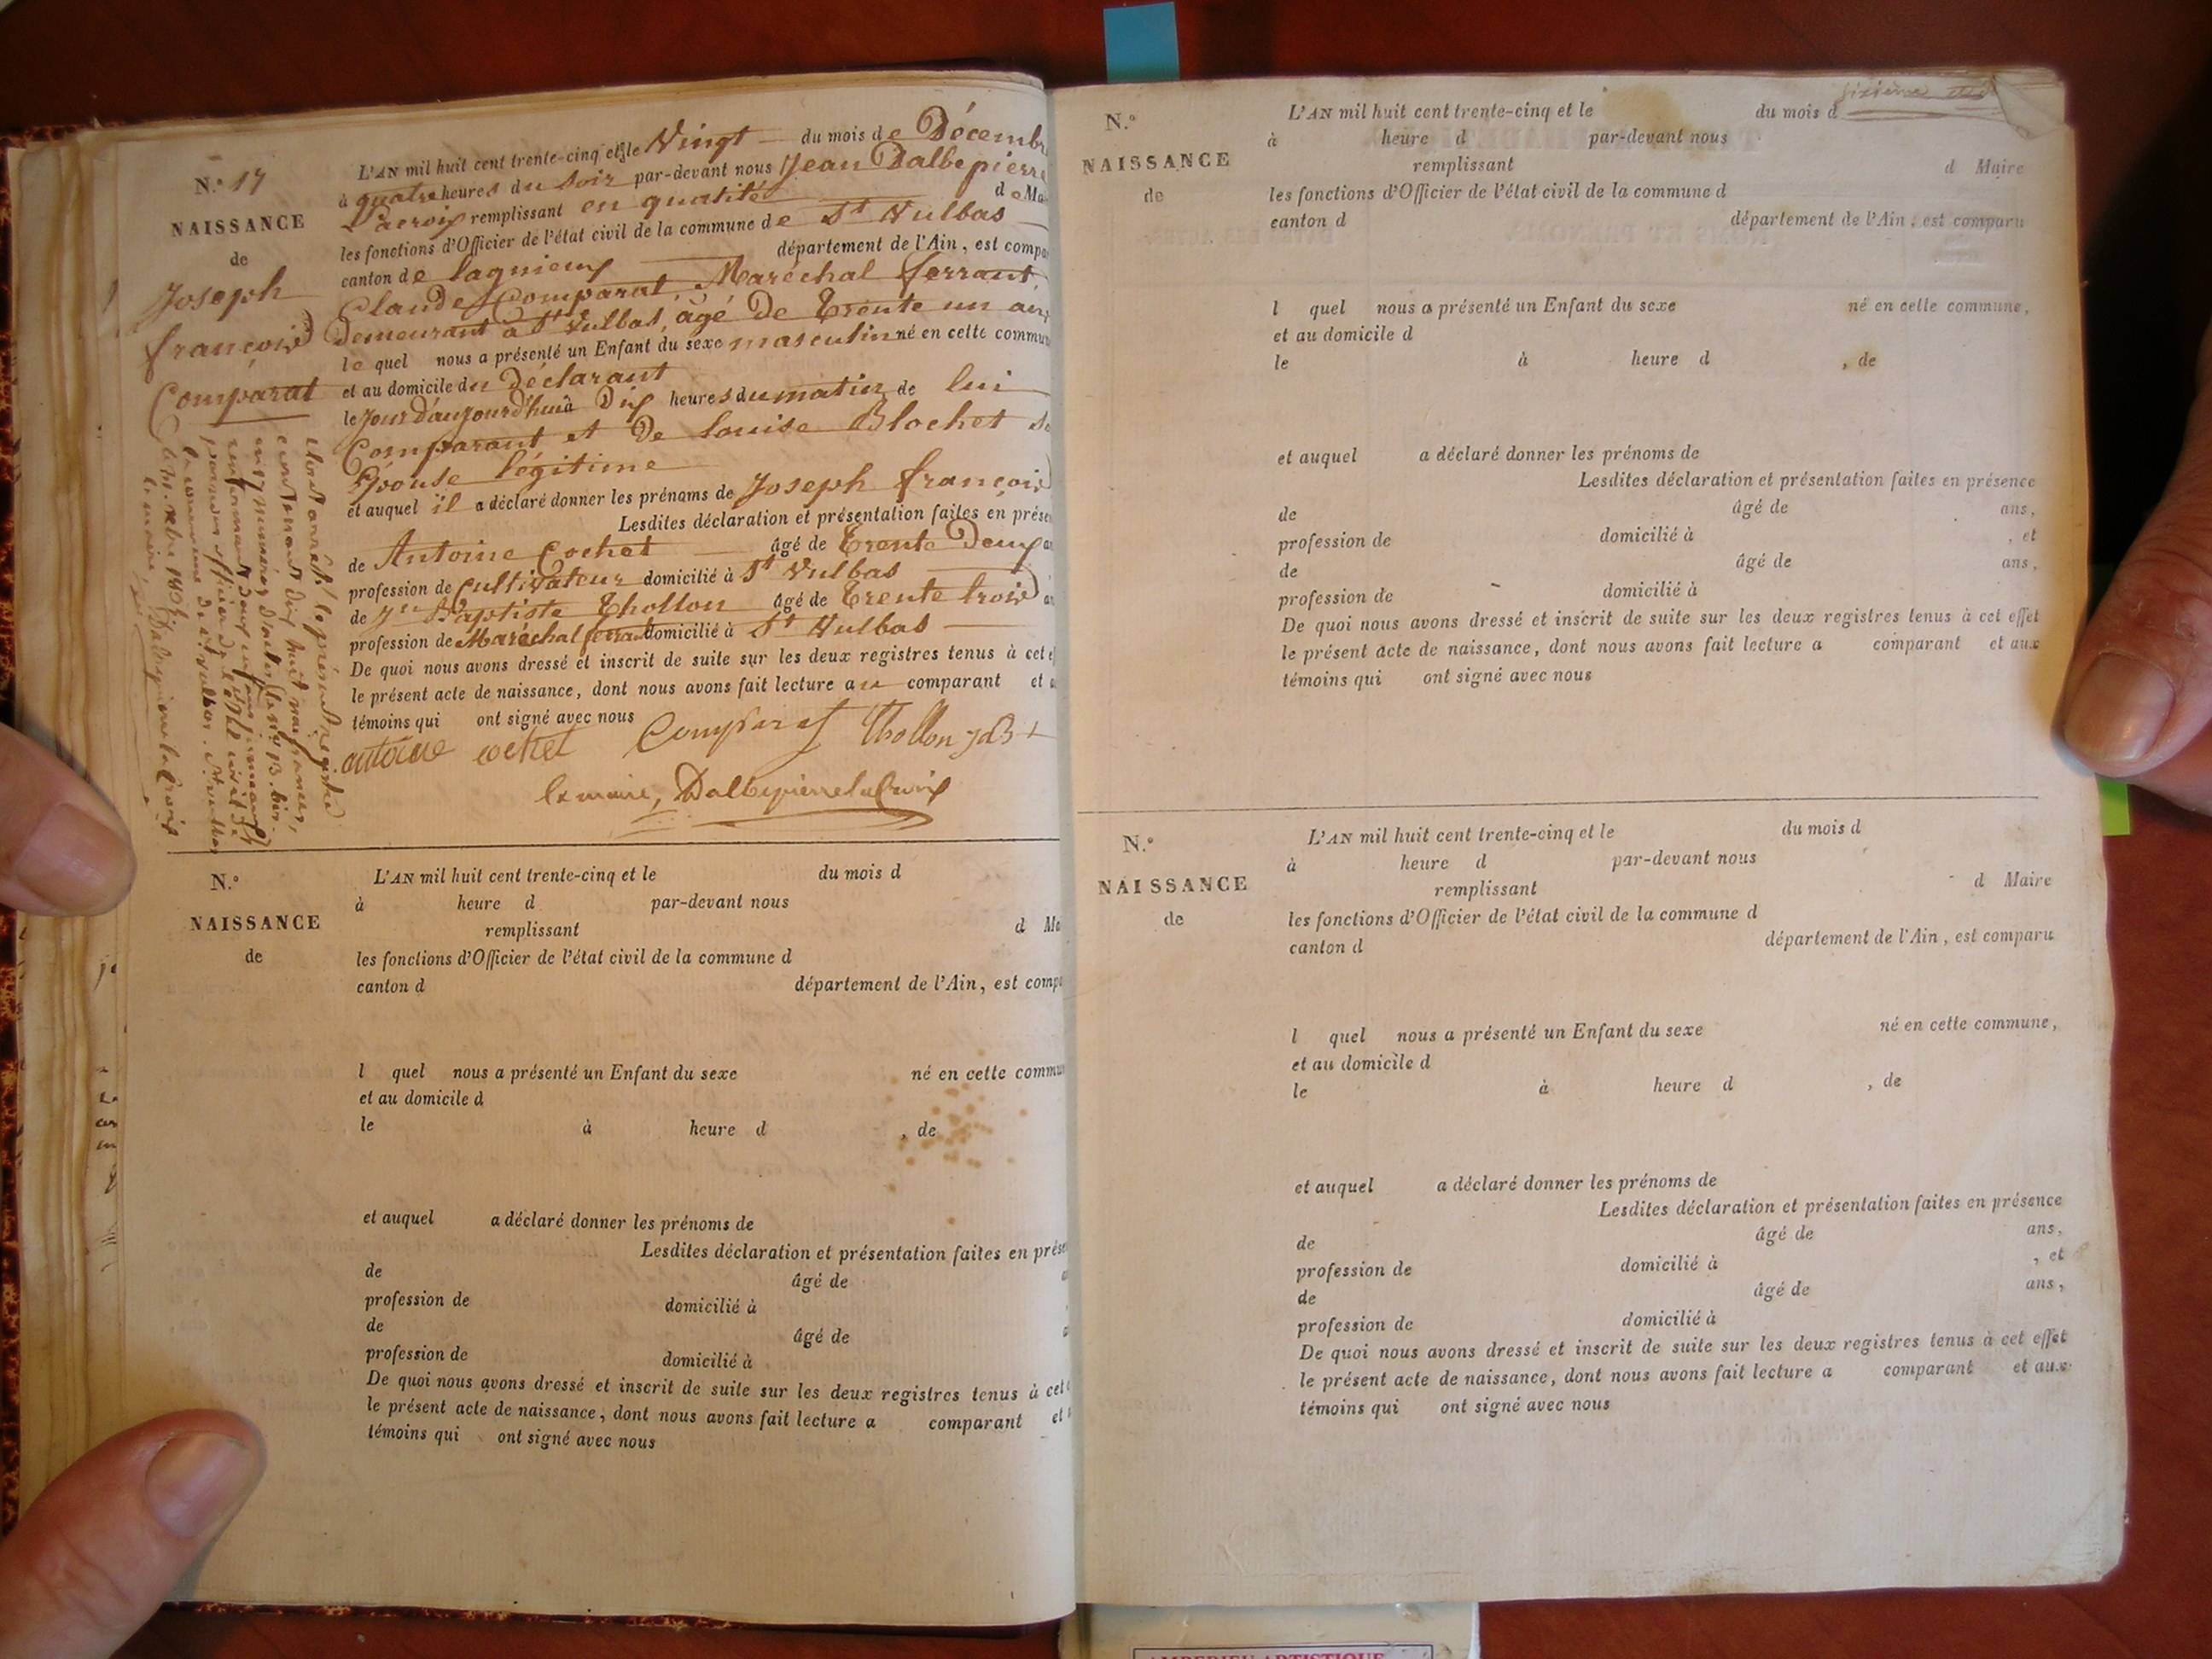 N.° 17
NAISSANCE
de
Joseph
françois
Comparat
L'AN mil huit cent trente-cinq et le Vingt du mois de Décembr
à quatre heures du soir par-devant nous Jean Dalbepierre
Lacroix remplissant en qualité de Ma
les fonctions d'Officier de l'état civil de la commune de St Vulbas
canton de lagnieux département de l'Ain, est compa
Claude Comparat, Maréchal ferrant
Demeurant à St Vulbas, âgé De trente un ans
le quel nous a présenté un Enfant du sexe masculin né en cette commun
et au domicile du Déclarant
le jour d'aujourd'hui à Dix heures du matin, de lui
Comparant et De louise Blochet s
Épouse légitime
et auquel il a déclaré donner les prénoms de Joseph françois
Lesdites déclaration et présentation faites en prése
de Antoine Cochet âgé de trente Deux
profession de Cultivateur domicilié à St Vulbas
de Jn Baptiste Thollon âgé de trente trois
profession de Maréchal ferrant domicilié à St Vulbas
De quoi nous avons dressé et inscrit de suite sur les deux registres tenus à cet
le présent acte de naissance, dont nous avons fait lecture au comparant et
témoins qui ont signé avec nous
antoine cochet Comparat Thollon J B
le maire, Dalbepierre lacroix
Clos et arrêté le présent registre
contenant dix huit naissances,
officier de l'état civil de
la commune de St Vulbas. St Vulbas
le maire, Dalbepierre lacroix
N.°
NAISSANCE
de
L'AN mil huit cent trente-cinq et le du mois d
à heure d par-devant nous
remplissant d Ma
les fonctions d'Officier de l'état civil de la commune d
canton d département de l'Ain, est compa
l quel nous a présenté un Enfant du sexe né en cette commu
et au domicile d
le à heure d , de
et auquel a déclaré donner les prénoms de
Lesdites déclaration et présentation faites en prése
de âgé de
profession de domicilié à
de âgé de
profession de domicilié à
De quoi nous avons dressé et inscrit de suite sur les deux registres tenus à cet
le présent acte de naissance, dont nous avons fait lecture a comparant et
témoins qui ont signé avec nous
sixième
N.°
NAISSANCE
de
L'AN mil huit cent trente-cinq et le du mois d
à heure d par-devant nous
remplissant d Maire
les fonctions d'Officier de l'état civil de la commune d
canton d département de l'Ain, est comparu
l quel nous a présenté un Enfant du sexe né en cette commune,
et au domicile d
le à heure d , de
et auquel a déclaré donner les prénoms de
Lesdites déclaration et présentation faites en présence
de âgé de ans,
profession de domicilié à , et
de âgé de ans,
profession de domicilié à
De quoi nous avons dressé et inscrit de suite sur les deux registres tenus à cet effet
le présent acte de naissance, dont nous avons fait lecture a comparant et aux
témoins qui ont signé avec nous
N.°
NAISSANCE
de
L'AN mil huit cent trente-cinq et le du mois d
à heure d par-devant nous
remplissant d Maire
les fonctions d'Officier de l'état civil de la commune d
canton d département de l'Ain, est comparu
l quel nous a présenté un Enfant du sexe né en cette commune,
et au domicile d
le à heure d , de
et auquel a déclaré donner les prénoms de
Lesdites déclaration et présentation faites en présence
de âgé de ans,
profession de domicilié à , et
de âgé de ans,
profession de domicilié à
De quoi nous avons dressé et inscrit de suite sur les deux registres tenus à cet effet
le présent acte de naissance, dont nous avons fait lecture a comparant et aux
témoins qui ont signé avec nous